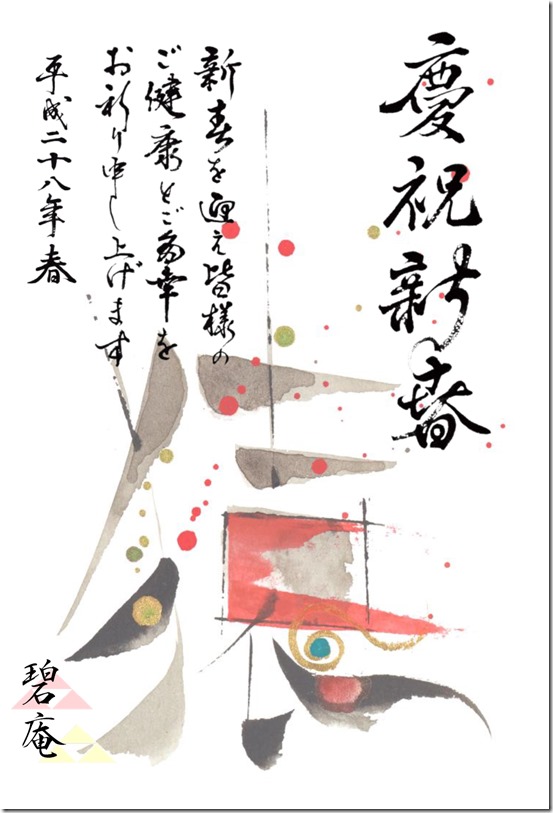 慶祝新春
新春を迎え皆様の
ご健康とご多幸を
お祈り申し上げます
平成二十八年春
碧庵